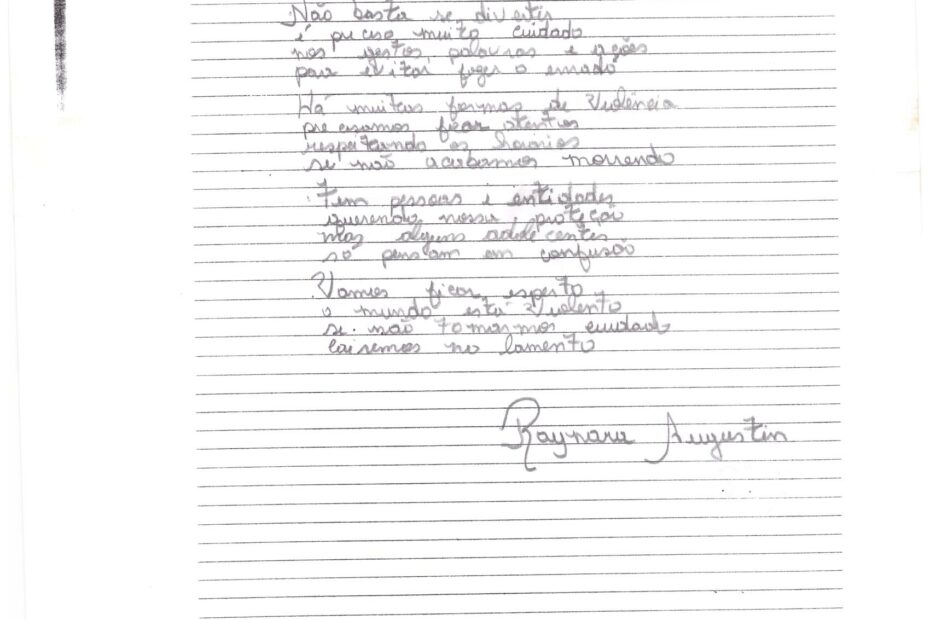 Não basta se divertir
é preciso muito cuidado
nos gestos, palavras e ações
para evitar fazer o errado
Há muitas formas de Violência
precisamos ficar atentos
respeitando os horários
se não acabamos morrendo
Tem pessoas e entidades
querendo nossa proteção
mas alguns adolecentes
só pensam em confusão
Vamos ficar esperto
o mundo está Violento
se não tomarmos cuidado
cairemos no lamento
Raynara Augustin